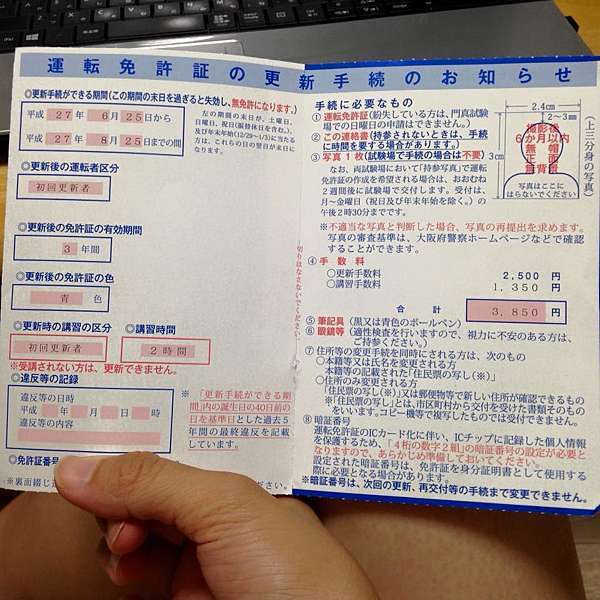 運転免許証の更新手続のお知らせ
◎更新手続ができる期間(この期間の末日を過ぎると失効し、無免許になります。)
平成 27年 6月 25日から
平成 27年 8月 25日までの間
左の期間の末日が、土曜日、
日曜日、祝日(振替休日を含む。)、
及び年末年始(12/29~1/3)に当たる
方は、これらの日の翌日が末日に
なります。
◎更新後の運転者区分
初回更新者
◎更新後の免許証の有効期間
3 年間
◎更新後の免許証の色
青 色
◎更新時の講習の区分
初回更新者
◎講習時間
2時間
※受講されない方は、更新できません。
◎違反等の記録
違反等の日時
平成 年 月 日 時
違反等の内容
※「更新手続ができる期
間」内の誕生日の40日前の
日を基準日とした過去5
年間の最終違反を記載
しています。
◎免許証番号
※裏面綴じ
ださい。
切りはなさないでください。
手続に必要なもの
①運転免許証(紛失している方は、門真試験
場での日曜日の申請はできません。)
②この連絡書(持参されないときは、手続
に時間を要する場合があります。)
③写真1枚(試験場で手続の場合は不要)
なお、両試験場において「持参写真」で運転
免許証の作成を希望される場合は、おおむね
2週間後に試験場で交付します。受付は、
月~金曜日(祝日及び年末年始を除く。)の
午後2時30分までです。
2.4cm
2~3mm
3cm
撮影後
6か月以内
無帽
正面
無背景
写真はここに
はらないでください
(上三分身の写真)
※不適当な写真と判断した場合、写真の再提出を求めます。
写真の審査基準は、大阪府警察ホームページなどで確認
することができます。
④手数料
○更新手数料 2,500 円
○講習手数料 1,350 円
合計 3,850 円
⑤筆記具(黒又は青色のボールペン)
⑥眼鏡等(適性検査を行いますので、視力に不安のある方は、
ご持参ください。)
⑦住所等の変更手続を同時にされる方は、次のもの
○本籍等又は氏名を変更される方
本籍等の記載された「住民票の写し(※)」
○住所のみ変更される方
「住民票の写し(※)」又は郵便物等で新しい住所が確認できるもの
※「住民票の写し」とは、市区町村から交付を受けた書類そのもの
をいいます。コピー機等で複写したものでは受付できません。
⑧暗証番号
運転免許証のICカード化に伴い、ICチップに記録した個人情報
を保護するため、「4桁の数字2組」の暗証番号の設定が必要と
なりますので、あらかじめ準備しておいてください。
設定された暗証番号は、免許証を身分証明書として使用する
際に必要となる場合があります。
※暗証番号は、次回の更新、再交付等の手続まで変更できません。